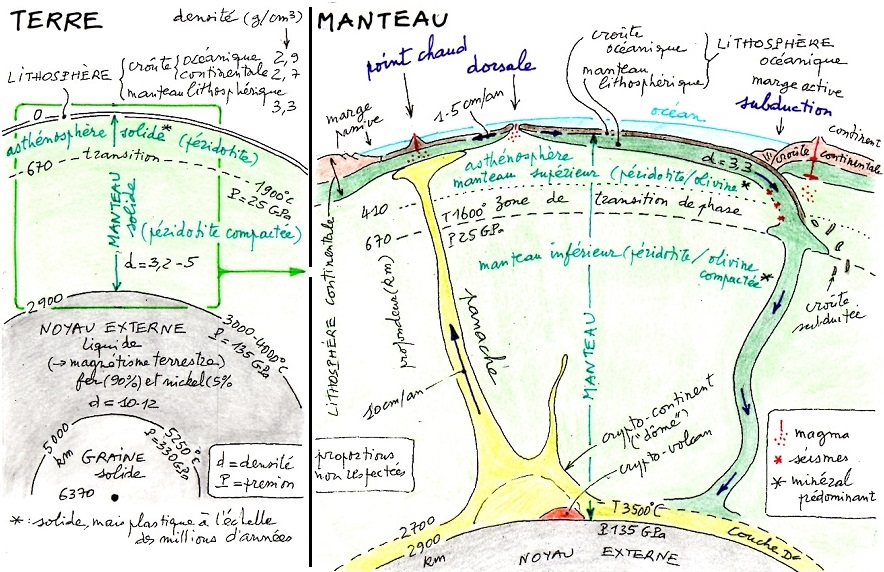 TERRE
densité (g/cm3)
LITHOSPHÈRE
croûte
océanique 2,9
continentale 2,7
manteau lithosphérique
3,3
0
asthénosphère solide* (péridotite)
670 transition
1900°C
P=25 GPa
MANTEAU
solide
(péridotite compactée)
d=3,2-5
2900
NOYAU EXTERNE
liquide
(→ magnétisme terrestre)
fer (90%) et nickel (5%
d=10-12
3000-4000°C
P=135 GPa
5000
km
5250°C
P=330 GPa
GRAINE
solide
6370
d=densité
P=pression
*: solide, mais plastique à l'échelle
des millions d'années
MANTEAU
point chaud
dorsale
croûte
océanique
manteau
lithosphérique
LITHOSPHÈRE
océanique
marge active
subduction
marge
passive
1-5cm/an
océan
continent
croûte continentale
d=3,3
asthénosphère
manteau supérieur (péridotite/olivine*
410
T1600° zone de transition de phase
670
P25 GPa
manteau inférieur (péridotite/olivine
compactée*
LITHOSPHÈRE continentale
profondeur (km)
panache
10cm/an
MANTEAU
croûte
subductée
crypto-continent
("dôme")
crypto-volcan
proportions
non respectées
magma
séismes
* minéral
prédominant
2700
2900
km
T3500°C
P135 GPa
couche D"
NOYAU EXTERNE